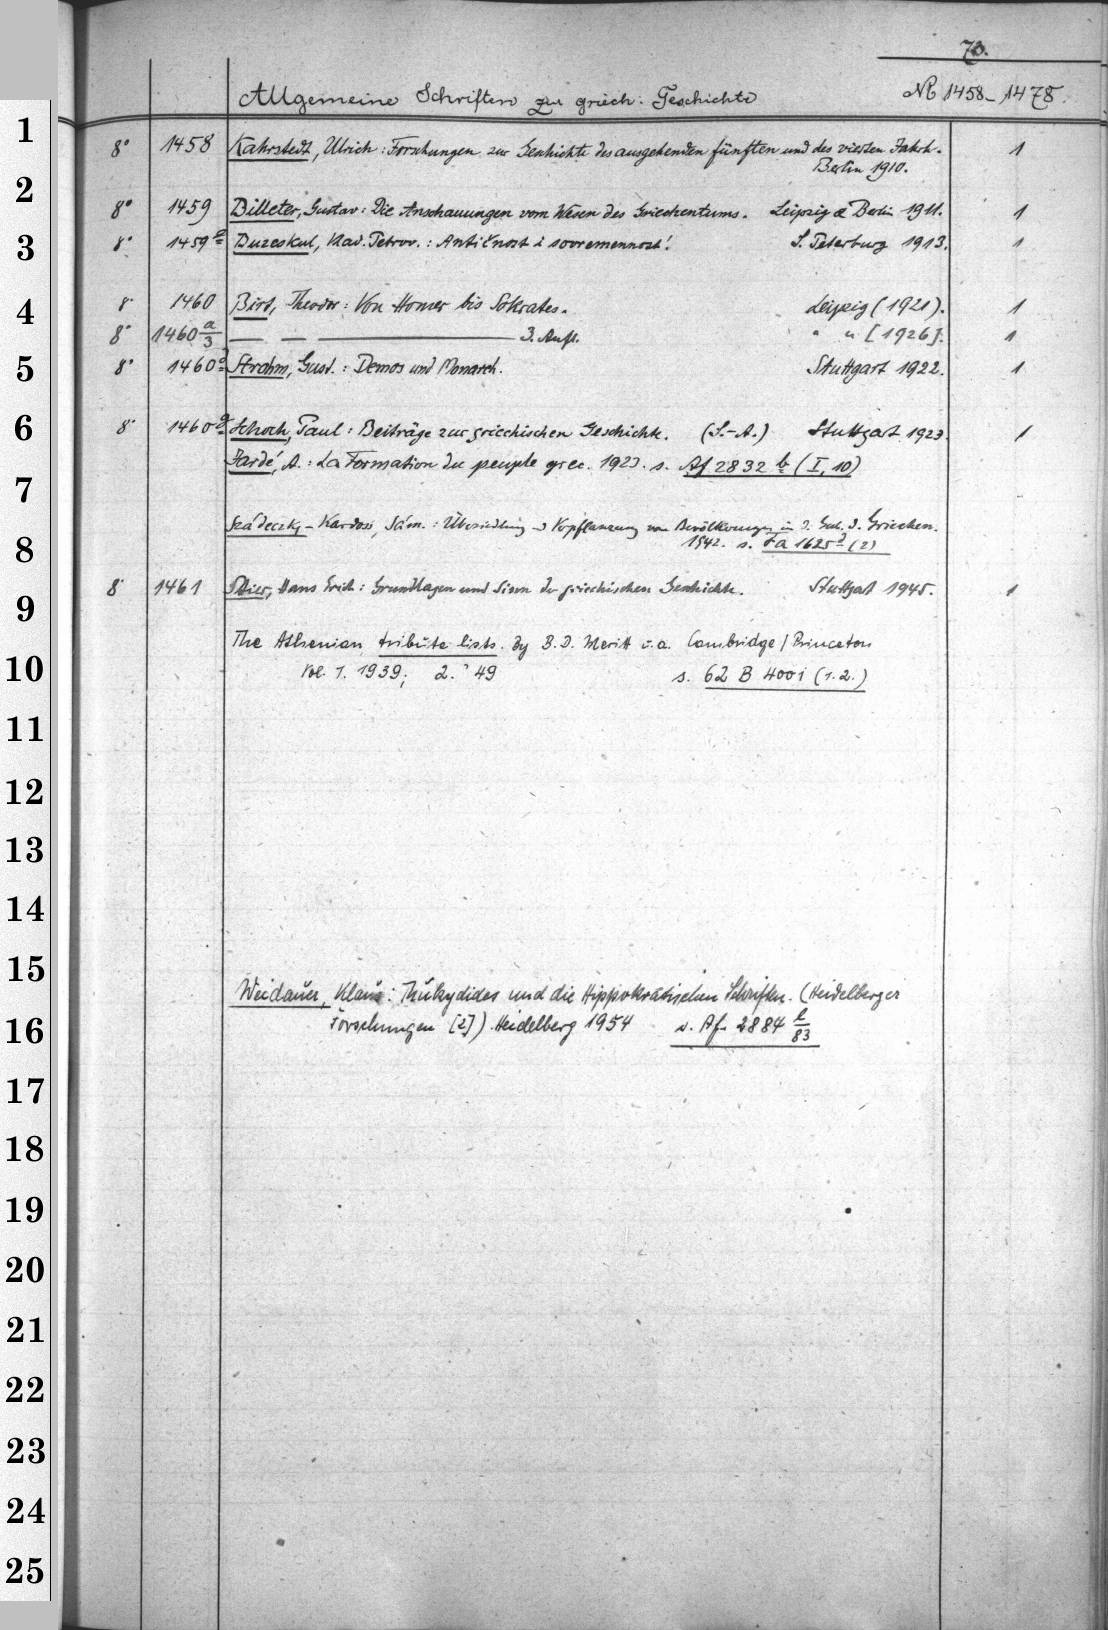 73.
Allgemeine Schriften zur griech: Geschichte № 1458-1478.
1
8° 1458 Kahrstedt, Ulrich: Forschungen zur Geschichte des ausgehenden fünften und des vierten Jahrh. 1
Berlin 1910.
2
8° 1459 Billeter, Gustav: Die Anschauungen vom Wesen des Griechentums. Leipzig & Berlin 1911. 1
3
8° 1459a Buzeskul, Vlad. Petrov.: Antičnost i sovremennost'. S. Peterburg 1913. 1
4
8° 1460 Birt, Theodor: Von Homer bis Sokrates. Leipzig (1921). 1
8° 1460 a/3 — — — 3. Aufl. " " [1926]. 1
5
8° 1460 Strohm, Gust.: Demos und Monarch. Stuttgart 1922. 1
6
8° 1460 Schoch, Paul: Beiträge zur griechischen Geschichte. (S.-A.) Stuttgart 1923. 1
Jardé, A.: La Formation du peuple grec. 1923. s. Af 2832 b (I, 10)
7
Szádeczky-Kardoss, Sám.: Übersiedlung u Verpflanzung von Bevölkerungen in d. Gesch. d. Griechen.
8
1942. s. Fa 1625 d (2)
8° 1461 Stier, Hans Erich: Grundlagen und Sinn der griechischen Geschichte. Stuttgart 1945. 1
9
The Athenian tribute lists. by B. D. Meritt u. a. Cambridge / Princeton
10
Vol. 1. 1939; 2. " 49 s. 62 B 400i (1. 2.)
11
12
13
14
15
Weidauer, Klaus: Thukydides und die Hippokratischen Schriften. (Heidelberger
16
Forschungen [2]) Heidelberg 1954 s. Af. 2884 l/83
17
18
19
20
21
22
23
24
25